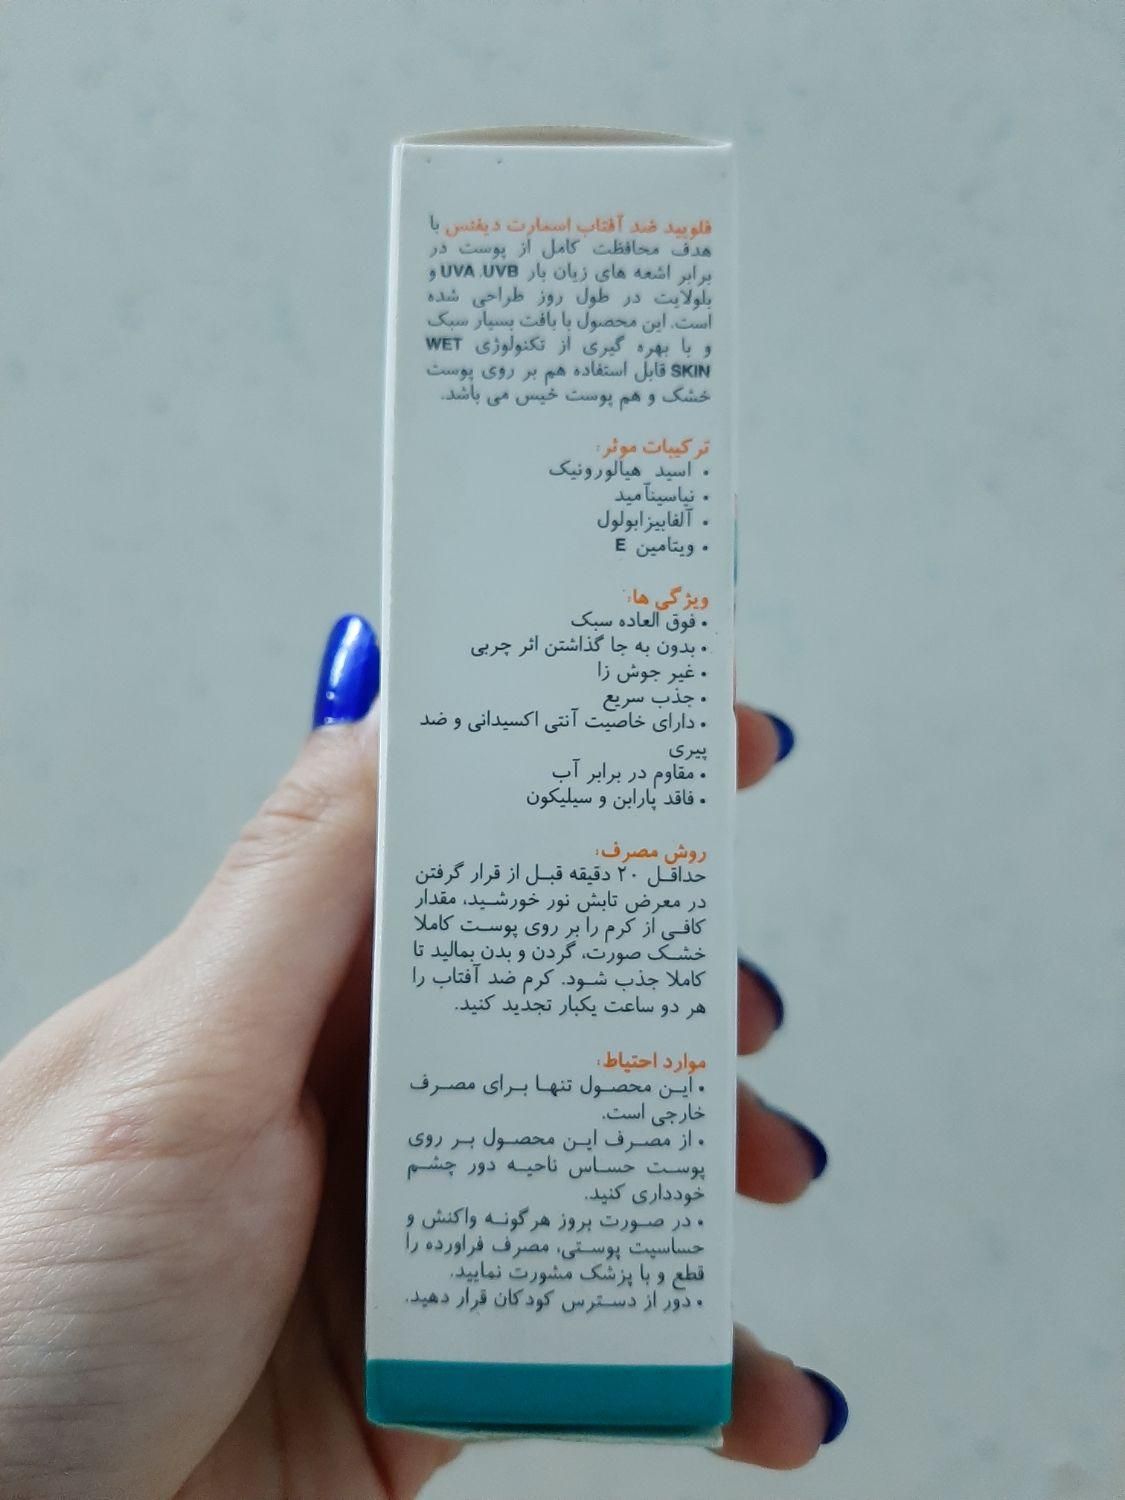 فلوئید ضد آفتاب اسمارت دیفنس با
هدف محافظت کامل از پوست در
برابر اشعه های زیان بار UVA ،UVB و
بلولایت در طول روز طراحی شده
است. این محصول با بافت بسیار سبک
و با بهره گیری از تکنولوژی WET
SKIN قابل استفاده هم بر روی پوست
خشک و هم پوست خیس می باشد.
ترکیبات موثر:
• اسید هیالورونیک
• نیاسینآمید
• آلفابیزابولول
• ویتامین E
ویژگی ها:
• فوق العاده سبک
• بدون به جا گذاشتن اثر چربی
• غیر جوش زا
• جذب سریع
• دارای خاصیت آنتی اکسیدانی و ضد
پیری
• مقاوم در برابر آب
• فاقد پارابن و سیلیکون
روش مصرف:
حداقل ۲۰ دقیقه قبل از قرار گرفتن
در معرض تابش نور خورشید، مقدار
کافی از کرم را بر روی پوست کاملا
خشک صورت، گردن و بدن بمالید تا
کاملا جذب شود. کرم ضد آفتاب را
هر دو ساعت یکبار تجدید کنید.
موارد احتیاط:
• این محصول تنها برای مصرف
خارجی است.
• از مصرف این محصول بر روی
پوست حساس ناحیه دور چشم
خودداری کنید.
• در صورت بروز هرگونه واکنش و
حساسیت پوستی، مصرف فراورده را
قطع و با پزشک مشورت نمایید.
• دور از دسترس کودکان قرار دهید.